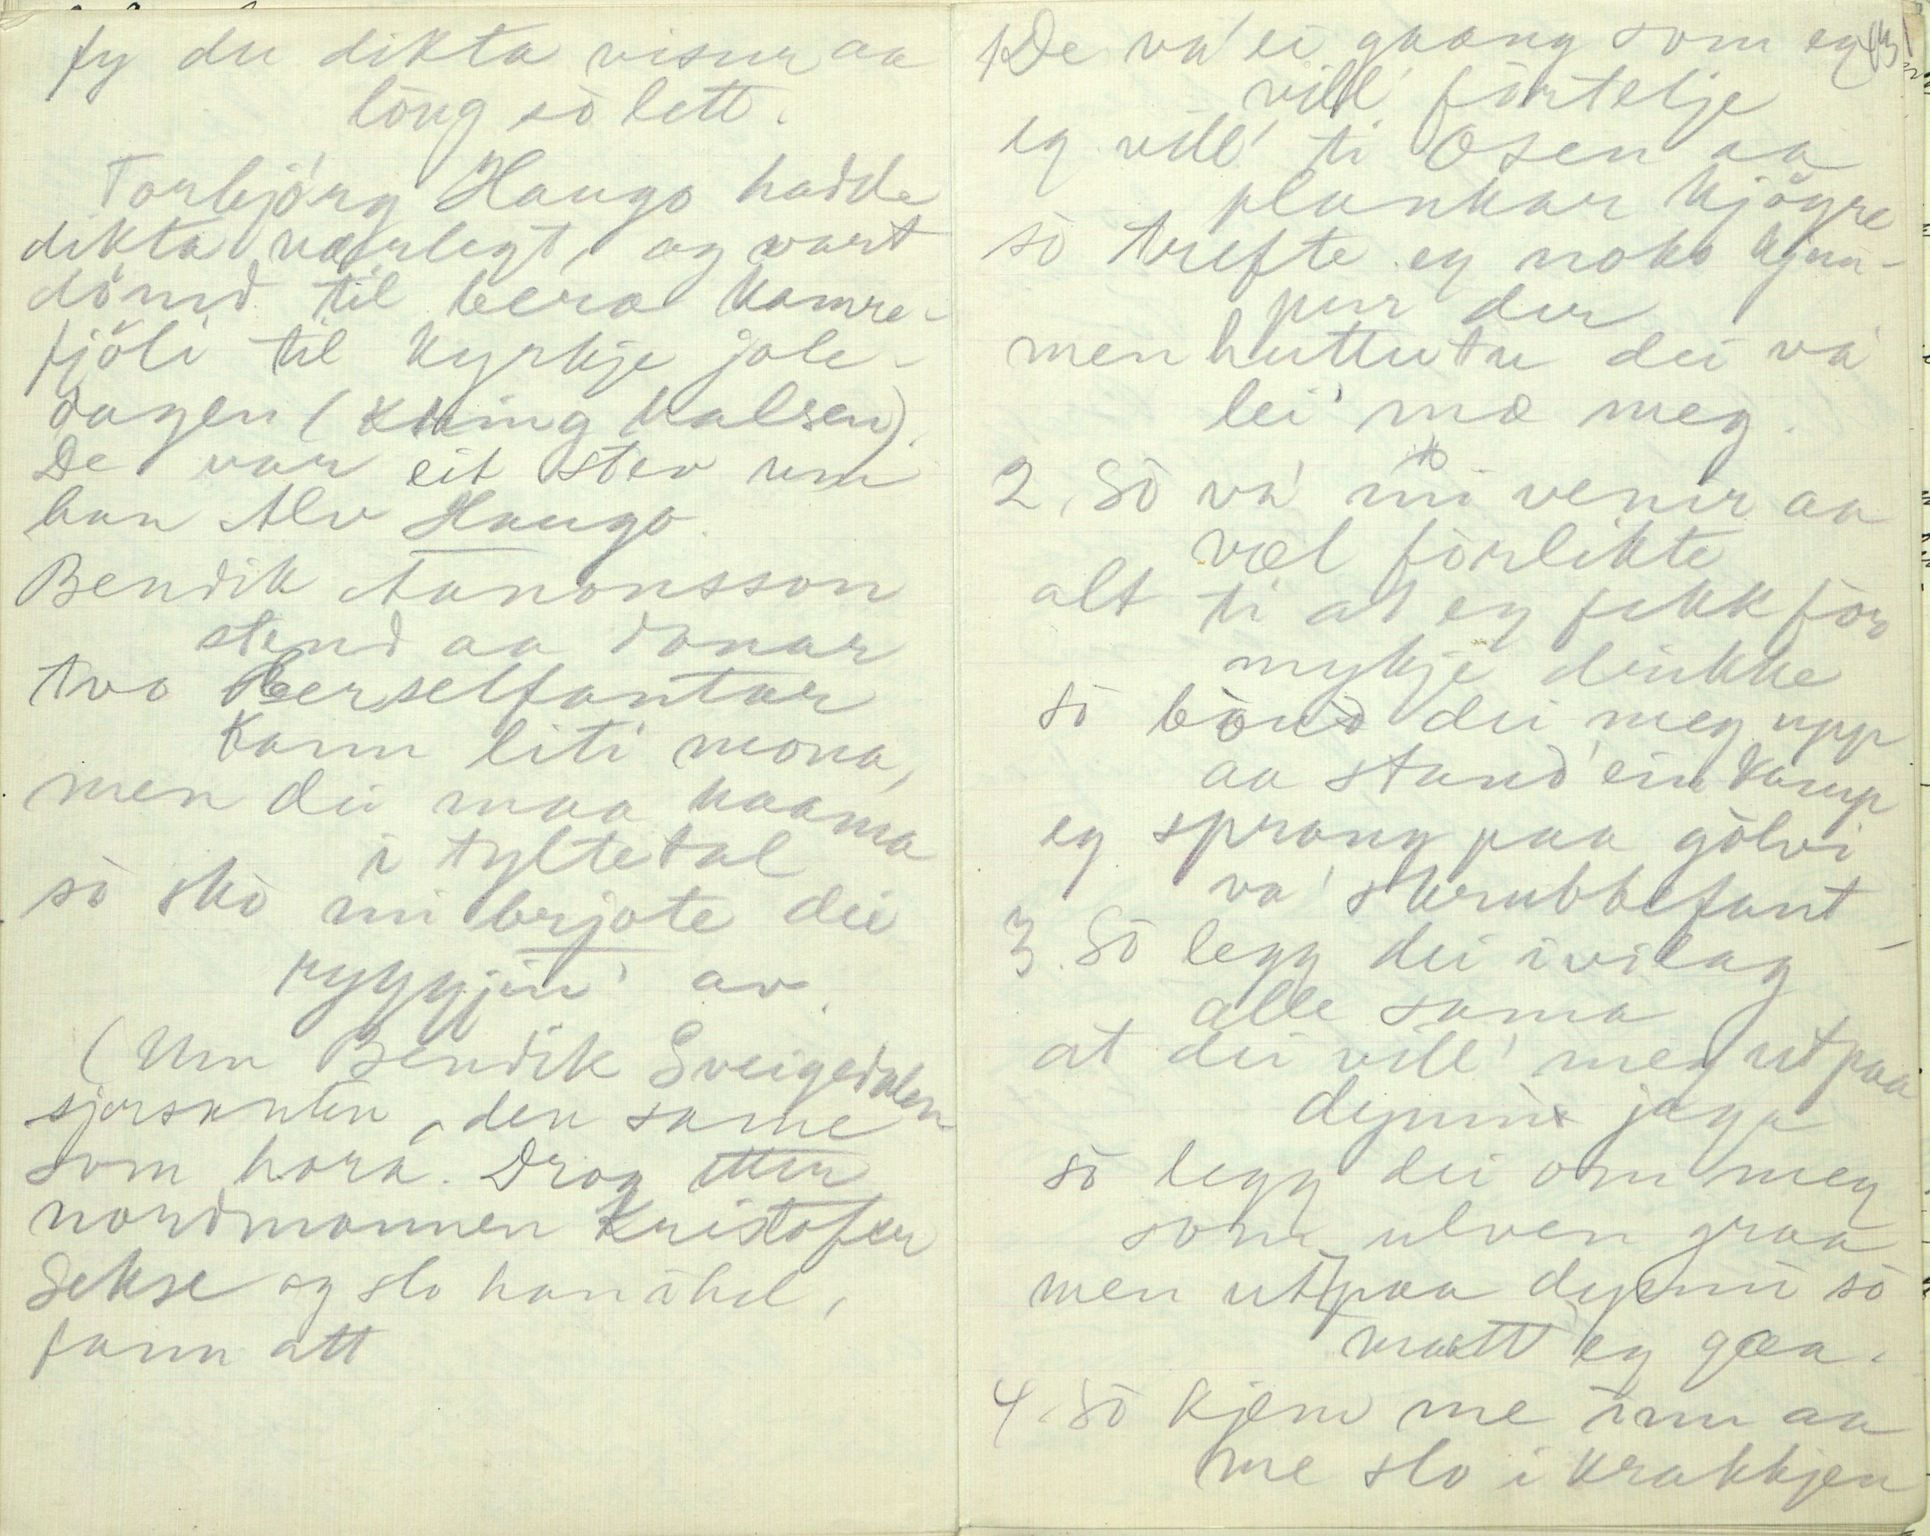 fy du dikta visur aa
löng sò lett.
Torbjörg Haugo hadde
dikta værlegt, og vart
dömd til bera kamre-
fjöli til kyrkje jole-
dagen (kring halsen).
De var eit stev um
han Alv Haugo.
Bendik Aanonsson
stend aa donar
two berselfantar
kann liti mona,
men dei maa kaama
i tyltetal
sò skò mi brjote dei
ryggjin' av.
(Um Bendik Sveigedalen
sjersanten, den same
som hora. Drog
nordmannen Kristofer
Sekse og slo han ihel,
fann att
1 De va' ei gaang som eg
vill' förtelje
eg vill' ti Osen aa
plankar kjöyre
sò trefte eg noko kjum-
pur der
men huttutu dei va'
lei' mæ meg.
2. Sò va' mi venir aa
væl förlikte
alt ti at eg fekk för
mykje drikke
sò bönd dei meg upp
aa stand' ein kamp
eg sprang paa gölvi
va' skrubbefant
3. Sò legg dei i vilag
alle sama
at dei vill' meg ut paa
dynni jaga
sò legg dei om meg
som ulven graa
men ut paa dynni sò
matt eg gaa.
4. Sò kjem me inn aa
me slo i krakkjen